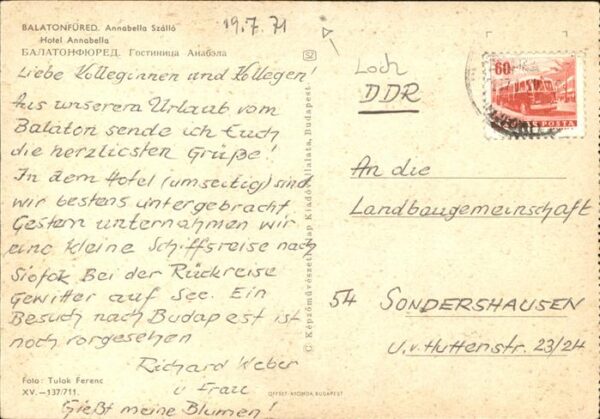 BALATONFÜRED. Annabella Szálló
Hotel Annabella
БАЛАТОНФЮРЕД. Гостиница Анабэла
19.7.71
Liebe Kolleginnen und Kollegen!
Aus unserem Urlaub vom
Balaton sende ich Euch
die herzlichsten Grüße!
In dem Hotel (umseitig) sind
wir bestens untergebracht
Gestern unternahmen wir
eine kleine Schiffsreise nach
Siofok Bei der Rückreise
Gewitter auf See. Ein
Besuch nach Budapest ist
noch vorgesehen
Richard Weber
u Frau
Gießt meine Blumen!
Foto: Tulok Ferenc
XV.—137/711.
© Képzőművészeti Alap Kiadóvállalata, Budapest
OFFSET-NYOMDA BUDAPEST
Loch
DDR
60
POSTA
An die
Landbaugemeinschaft
54 SONDERSHAUSEN
U.v. Huttenstr. 23/24